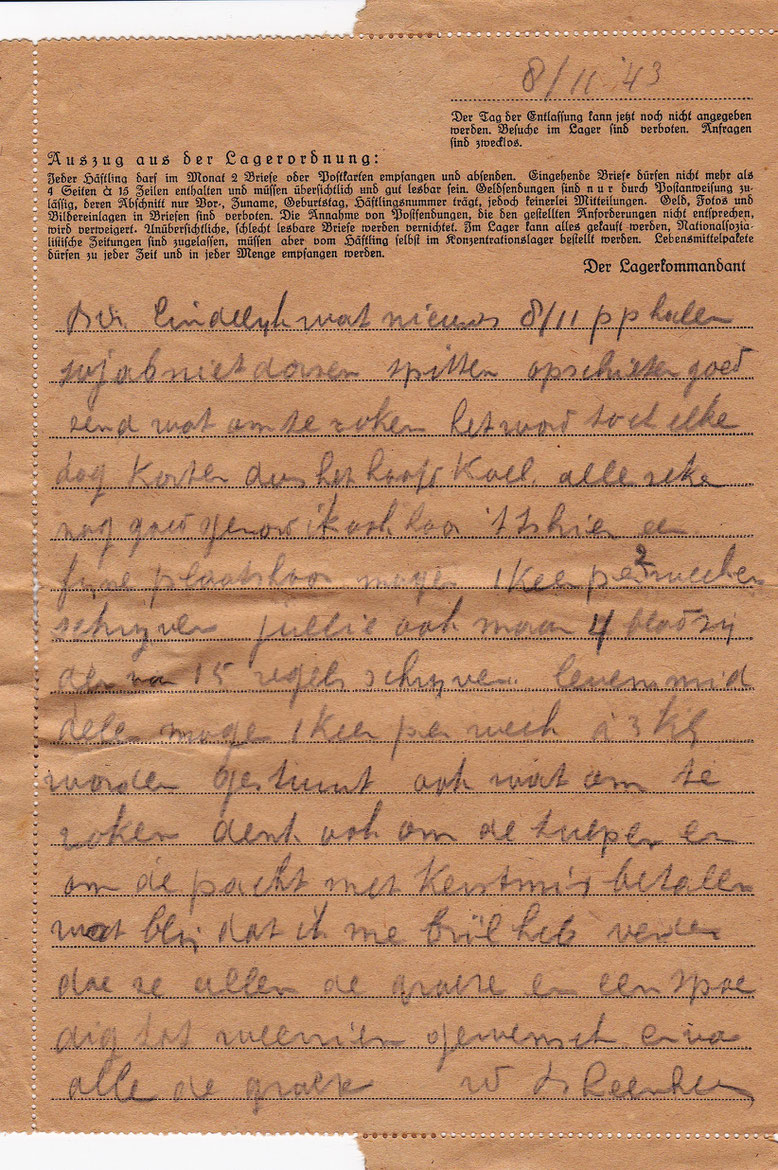 8/11 '43
Der Tag der Entlassung kann jetzt noch nicht angegeben
werden. Besuche im Lager sind verboten. Anfragen
sind zwecklos.
Auszug aus der Lagerordnung:
Jeder Häftling darf im Monat 2 Briefe oder Postkarten empfangen und absenden. Eingehende Briefe dürfen nicht mehr als
4 Seiten à 15 Zeilen enthalten und müssen übersichtlich und gut lesbar sein. Geldsendungen sind nur durch Postanweisung zu-
lässig, deren Abschnitt nur Vor-, Zuname, Geburtstag, Häftlingsnummer trägt, jedoch keinerlei Mitteilungen. Geld, Fotos und
Bildereinlagen in Briefen sind verboten. Die Annahme von Postsendungen, die den gestellten Anforderungen nicht entsprechen,
wird verweigert. Unübersichtliche, schlecht lesbare Briefe werden vernichtet. Im Lager kann alles gekauft werden, Nationalsozia-
listische Zeitungen sind zugelassen, müssen aber vom Häftling selbst im Konzentrationslager bestellt werden. Lebensmittelpakete
dürfen zu jeder Zeit und in jeder Menge empfangen werden.
Der Lagerkommandant
Eindelyk wat nieuws 8/11 pp
niet dorsen spitten opschieten goed
send wat om te roken het word toch elke
dag korter dus het hoofd koel. alle
nog goed ik ook hoor 't is hier een
fyne plaats hoor mogen 1 keer per 2 weeken
schryven jullie ook maar 4 bladzij
den van 15 regels schryven. levensmid
delen mogen 1 keer per week à 3 kg
worden gestuurt ook wat om te
roken denk ook om de tulpen en
om de pacht met Kerstmis betalen
wat bly dat ik me bril heb verder
doe ze allen de groete en een spoe
dig tot weerzien gewensch
alle de groete W